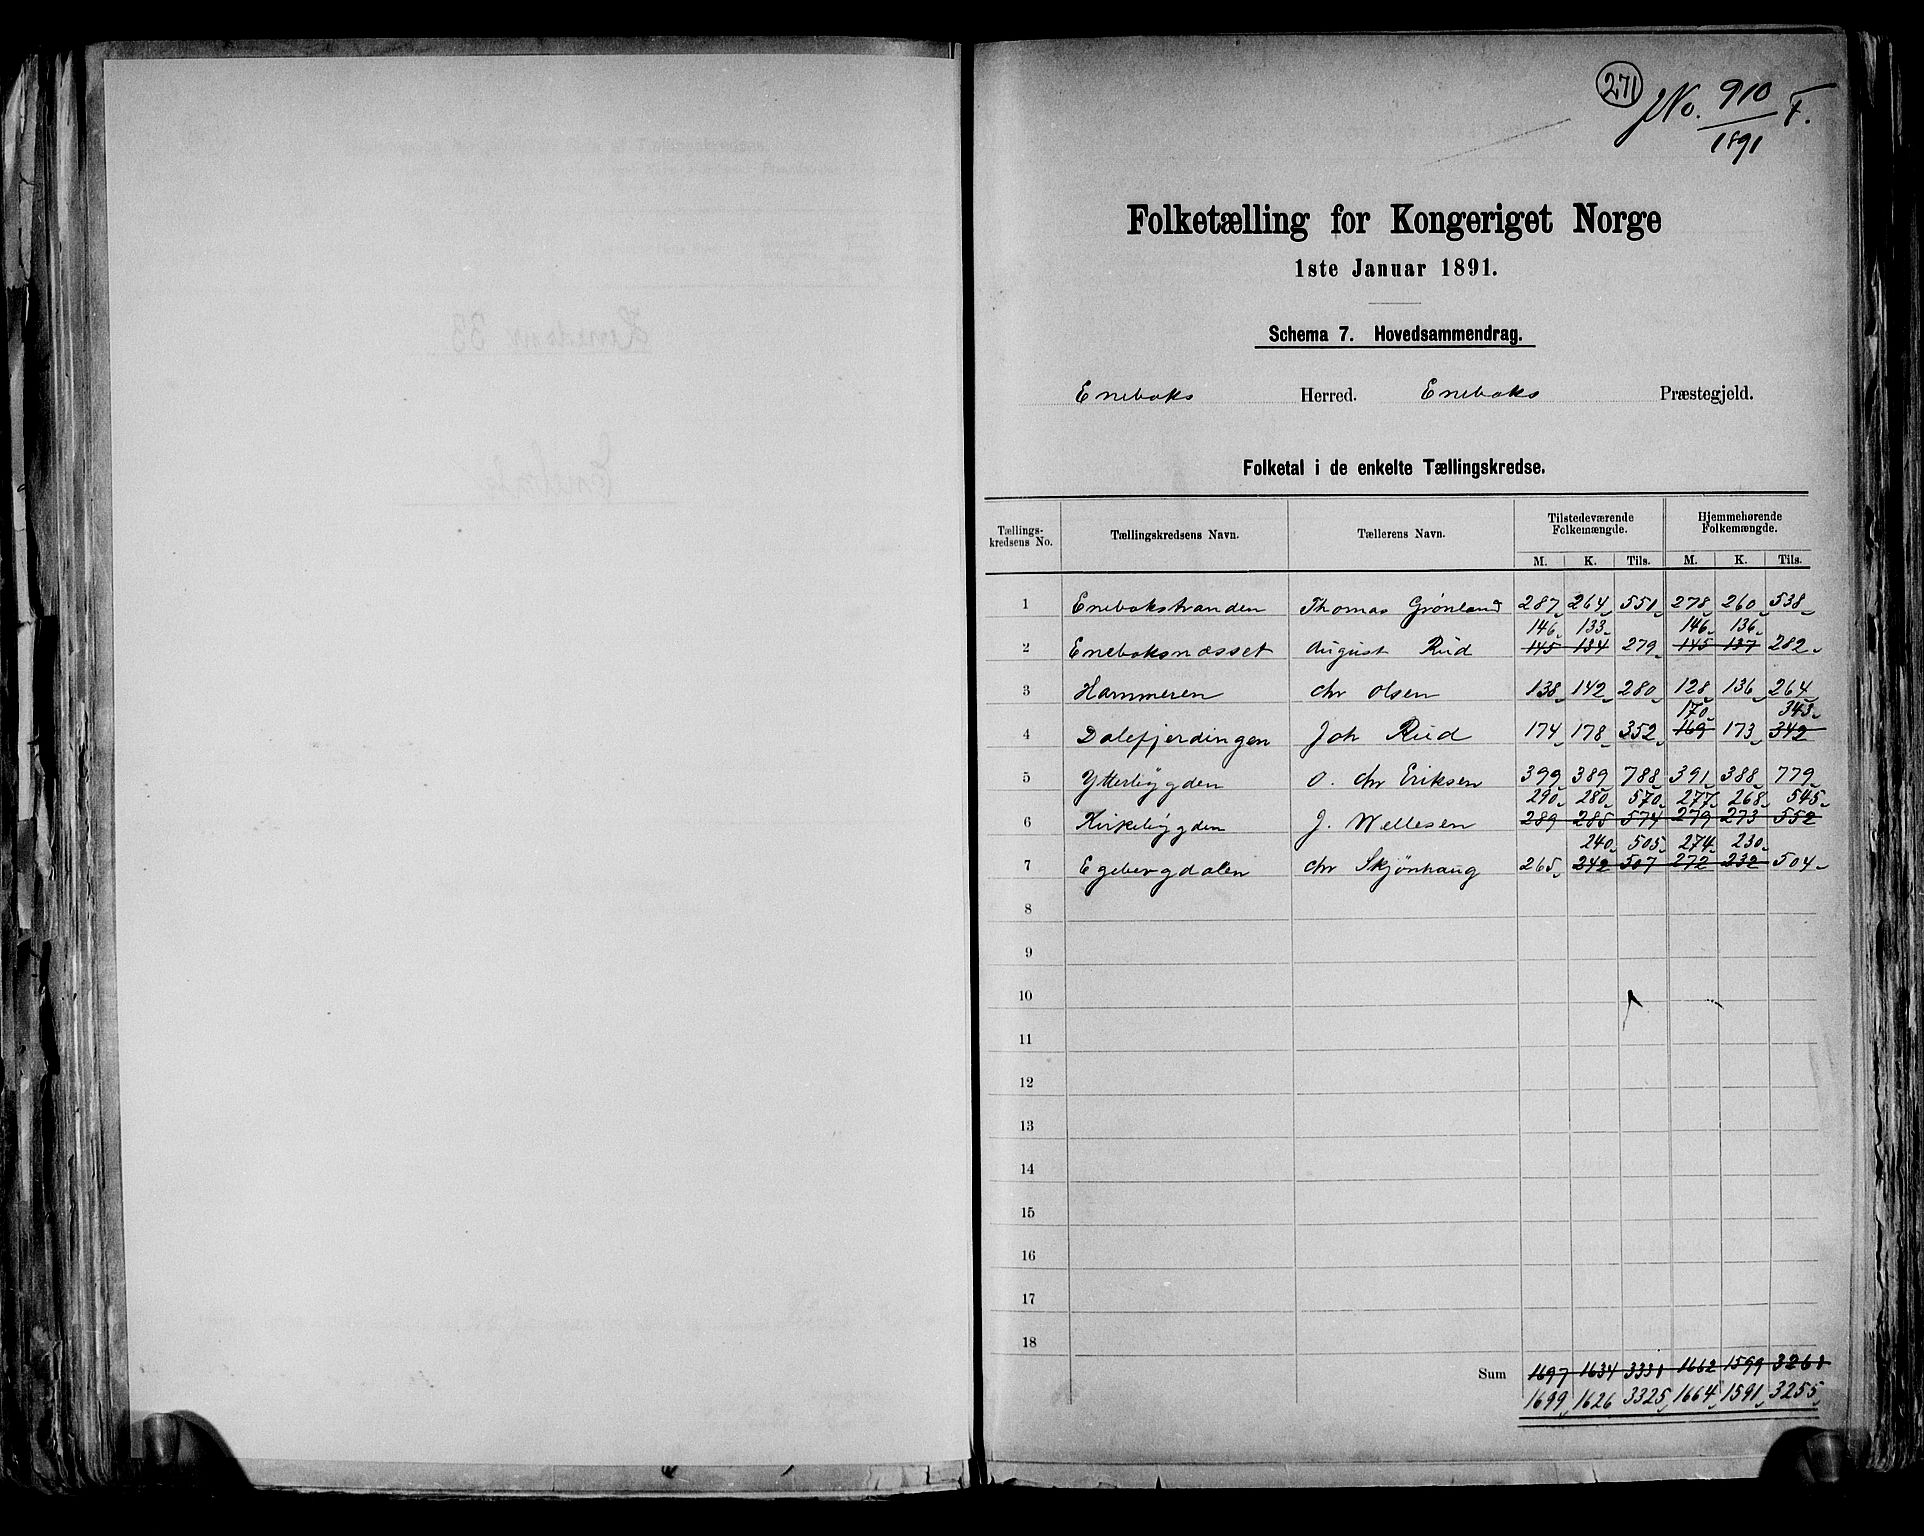 271
JNo. 910 / 1891 F.
Folketælling for Kongeriget Norge
1ste Januar 1891.
Schema 7. Hovedsammendrag.
Eneboks Herred. Eneboks Præstegjeld.
Folketal i de enkelte Tællingskredse.
Tællings-kredsens No. Tællingskredsens Navn. Tællerens Navn. Tilstedeværende Folkemængde. Hjemmehørende Folkemængde.
M. K. Tils. M. K. Tils.
1 Enebakstranden Thomas Grønland 287 264 551 278 260 538
146 133 146 136
2 Eneboksnæsset August Rud 145 134 279 145 137 282
3 Hammeren Chr Olsen 138 142 280 128 136 264
170 343
4 Dalefjerdingen Joh Rud 174 178 352 169 173 342
5 Ytterbygden O. Chr Eriksen 399 389 788 391 388 779
290 280 570 277 268 545
6 Kirkebygden J. Wellesen 289 285 574 279 273 552
240 505 274 230
7 Egebergdalen Chr Skjønhaug 265 242 507 272 232 504
8
9
10
11
12
13
14
15
16
17
18
Sum 1697 1634 3331 1662 1599 3261
1699 1626 3325 1664 1591 3255